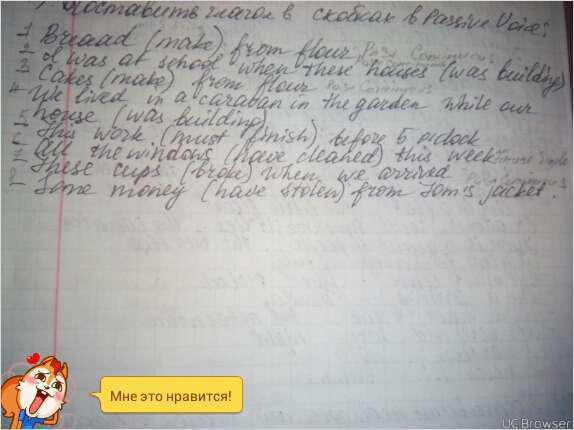 Поставить глагол в скобках в Passive Voice:
1 Breaad (make) from flour Pase Continuous
2 I was at school when these houses (was building)
3 Cakes (make) from flour Pase Continuous
4 We lived in a caraban in the garden while our
house (was building)
5 This work (must finish) before 5 o'clock
6 All the windows (have cleaned) this week Future Simple
7 These cups (broke) when we arrived
8 Some money (have stolen) from Tom's jacket.
Мне это нравится!
UC Browser